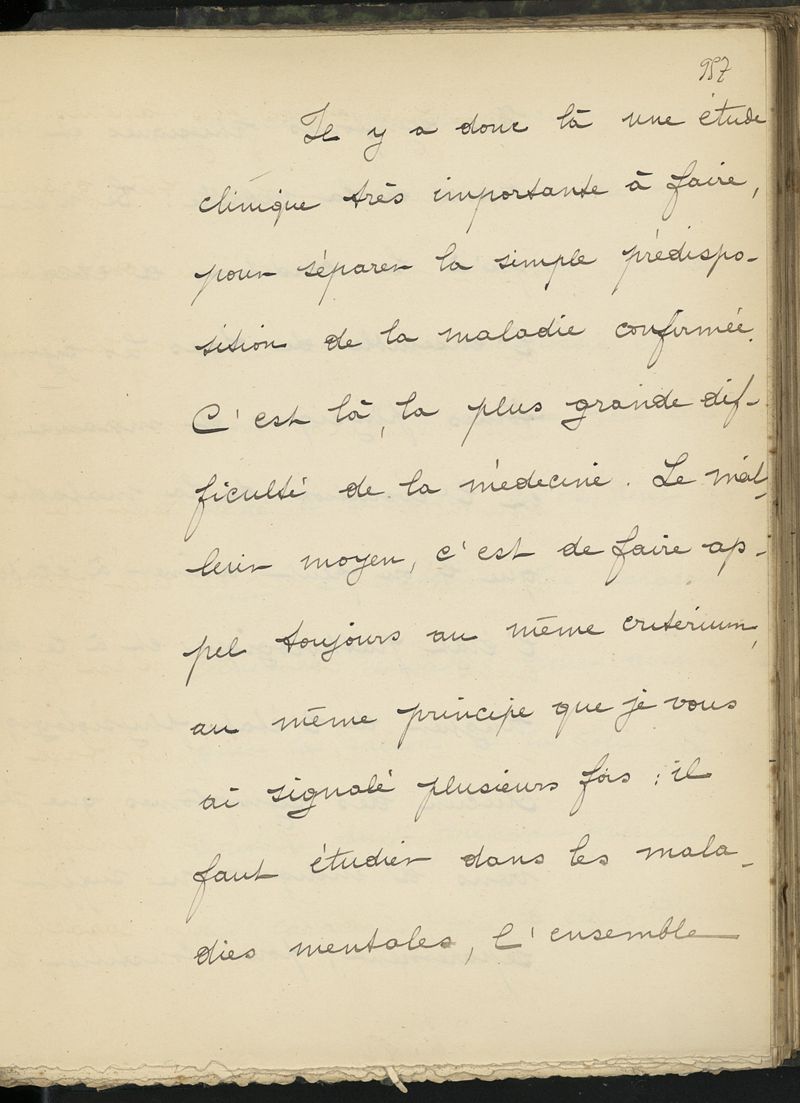 957
Il y a donc là une étude
clinique très importante à faire,
pour séparer la simple prédispo-
sition de la maladie confirmée.
C'est là, la plus grande dif-
ficulté de la médecine. Le meil-
leur moyen, c'est de faire ap-
pel toujours au même criterium,
au même principe que je vous
ai signalé plusieurs fois : il
faut étudier dans les mala-
dies mentales, l'ensemble